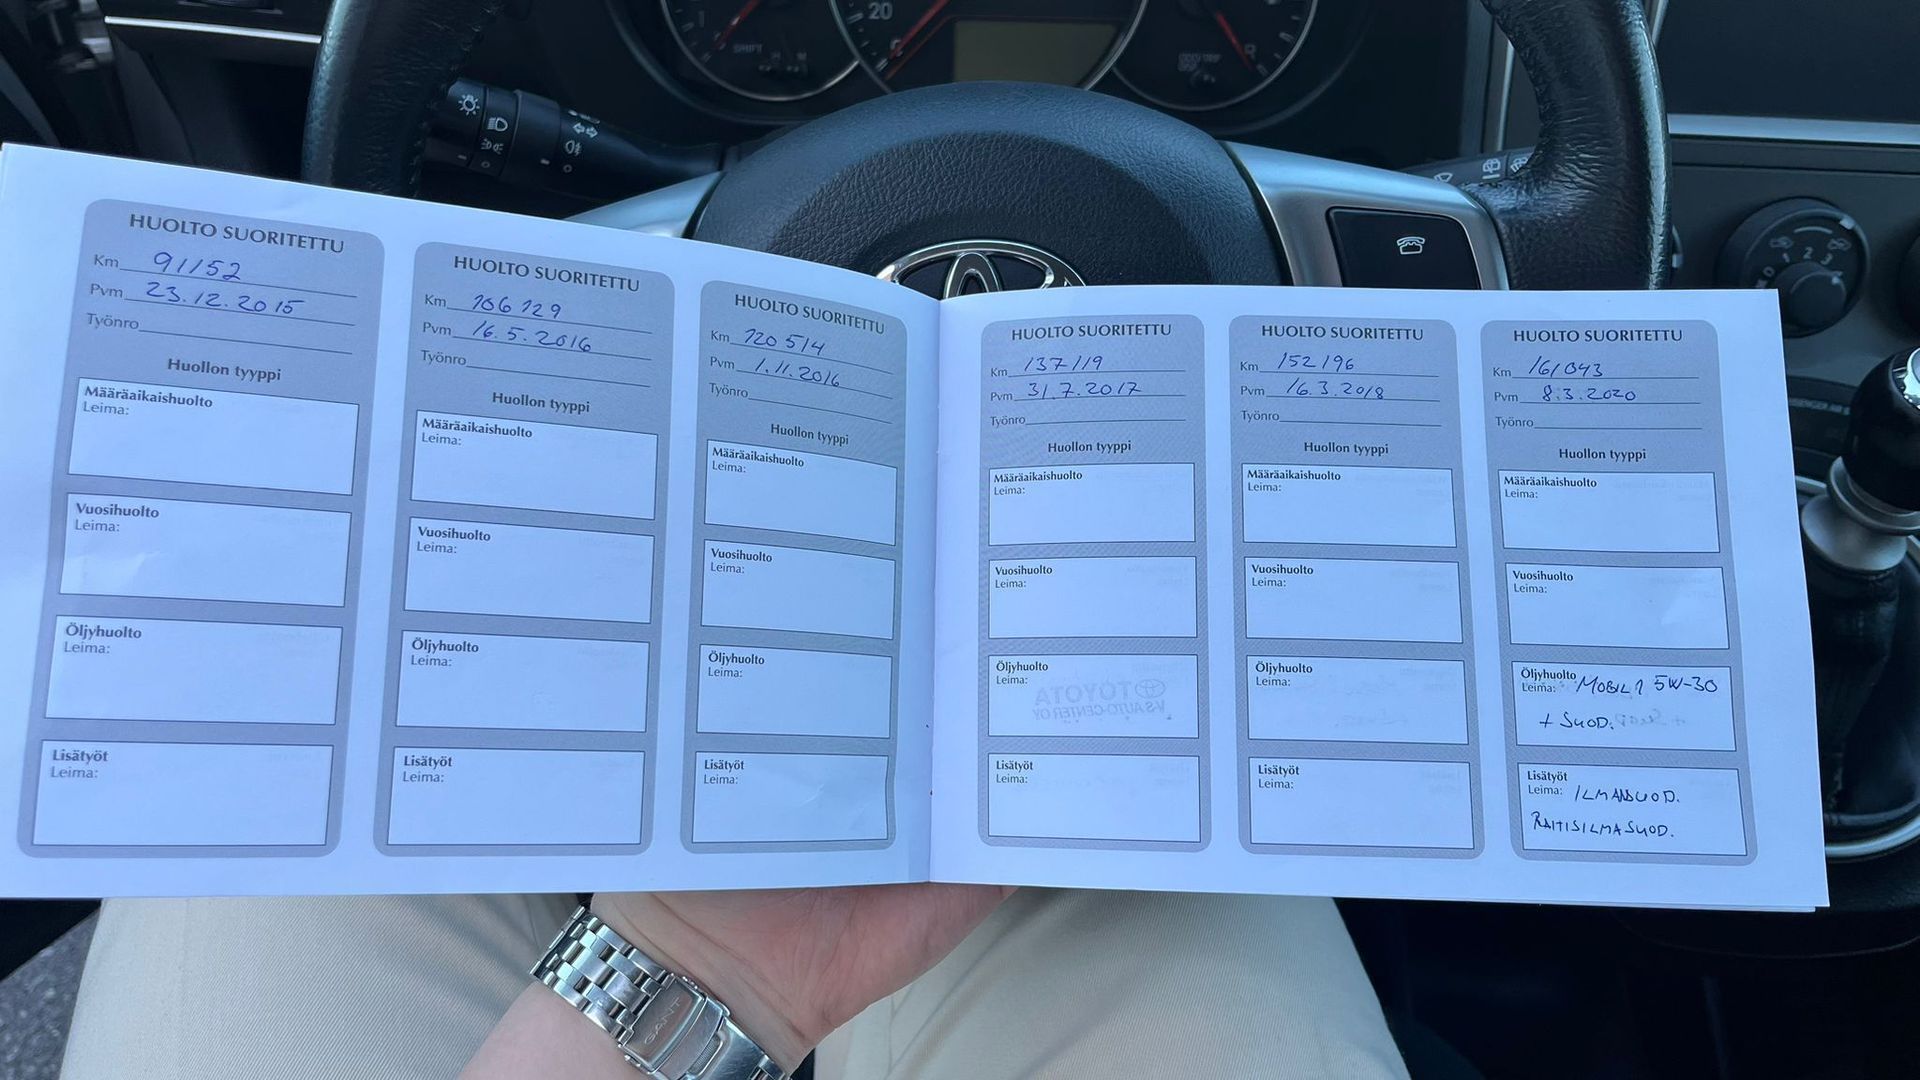 20
SHIFT
HUOLTO SUORITETTU
Km 91152
Pvm 23.12.2015
Työnro
Huollon tyyppi
Määräaikaishuolto
Leima:
Vuosihuolto
Leima:
Öljyhuolto
Leima:
Lisätyöt
Leima:
HUOLTO SUORITETTU
Km 106129
Pvm 16.5.2016
Työnro
Huollon tyyppi
Määräaikaishuolto
Leima:
Vuosihuolto
Leima:
Öljyhuolto
Leima:
Lisätyöt
Leima:
HUOLTO SUORITETTU
Km 120514
Pvm 1.11.2016
Työnro
Huollon tyyppi
Määräaikaishuolto
Leima:
Vuosihuolto
Leima:
Öljyhuolto
Leima:
Lisätyöt
Leima:
HUOLTO SUORITETTU
Km 137119
Pvm 31.7.2017
Työnro
Huollon tyyppi
Määräaikaishuolto
Leima:
Vuosihuolto
Leima:
Öljyhuolto
Leima:
TOYOTA
V-S AUTO-CENTER OY
Lisätyöt
Leima:
HUOLTO SUORITETTU
Km 152196
Pvm 16.3.2018
Työnro
Huollon tyyppi
Määräaikaishuolto
Leima:
Vuosihuolto
Leima:
Öljyhuolto
Leima:
Lisätyöt
Leima:
HUOLTO SUORITETTU
Km 161043
Pvm 8.3.2020
Työnro
Huollon tyyppi
Määräaikaishuolto
Leima:
Vuosihuolto
Leima:
Öljyhuolto
Leima: MOBIL 1 5W-30
+ SUOD.
Lisätyöt
Leima: ILMANSUOD.
RAITISILMASUOD.
GANT